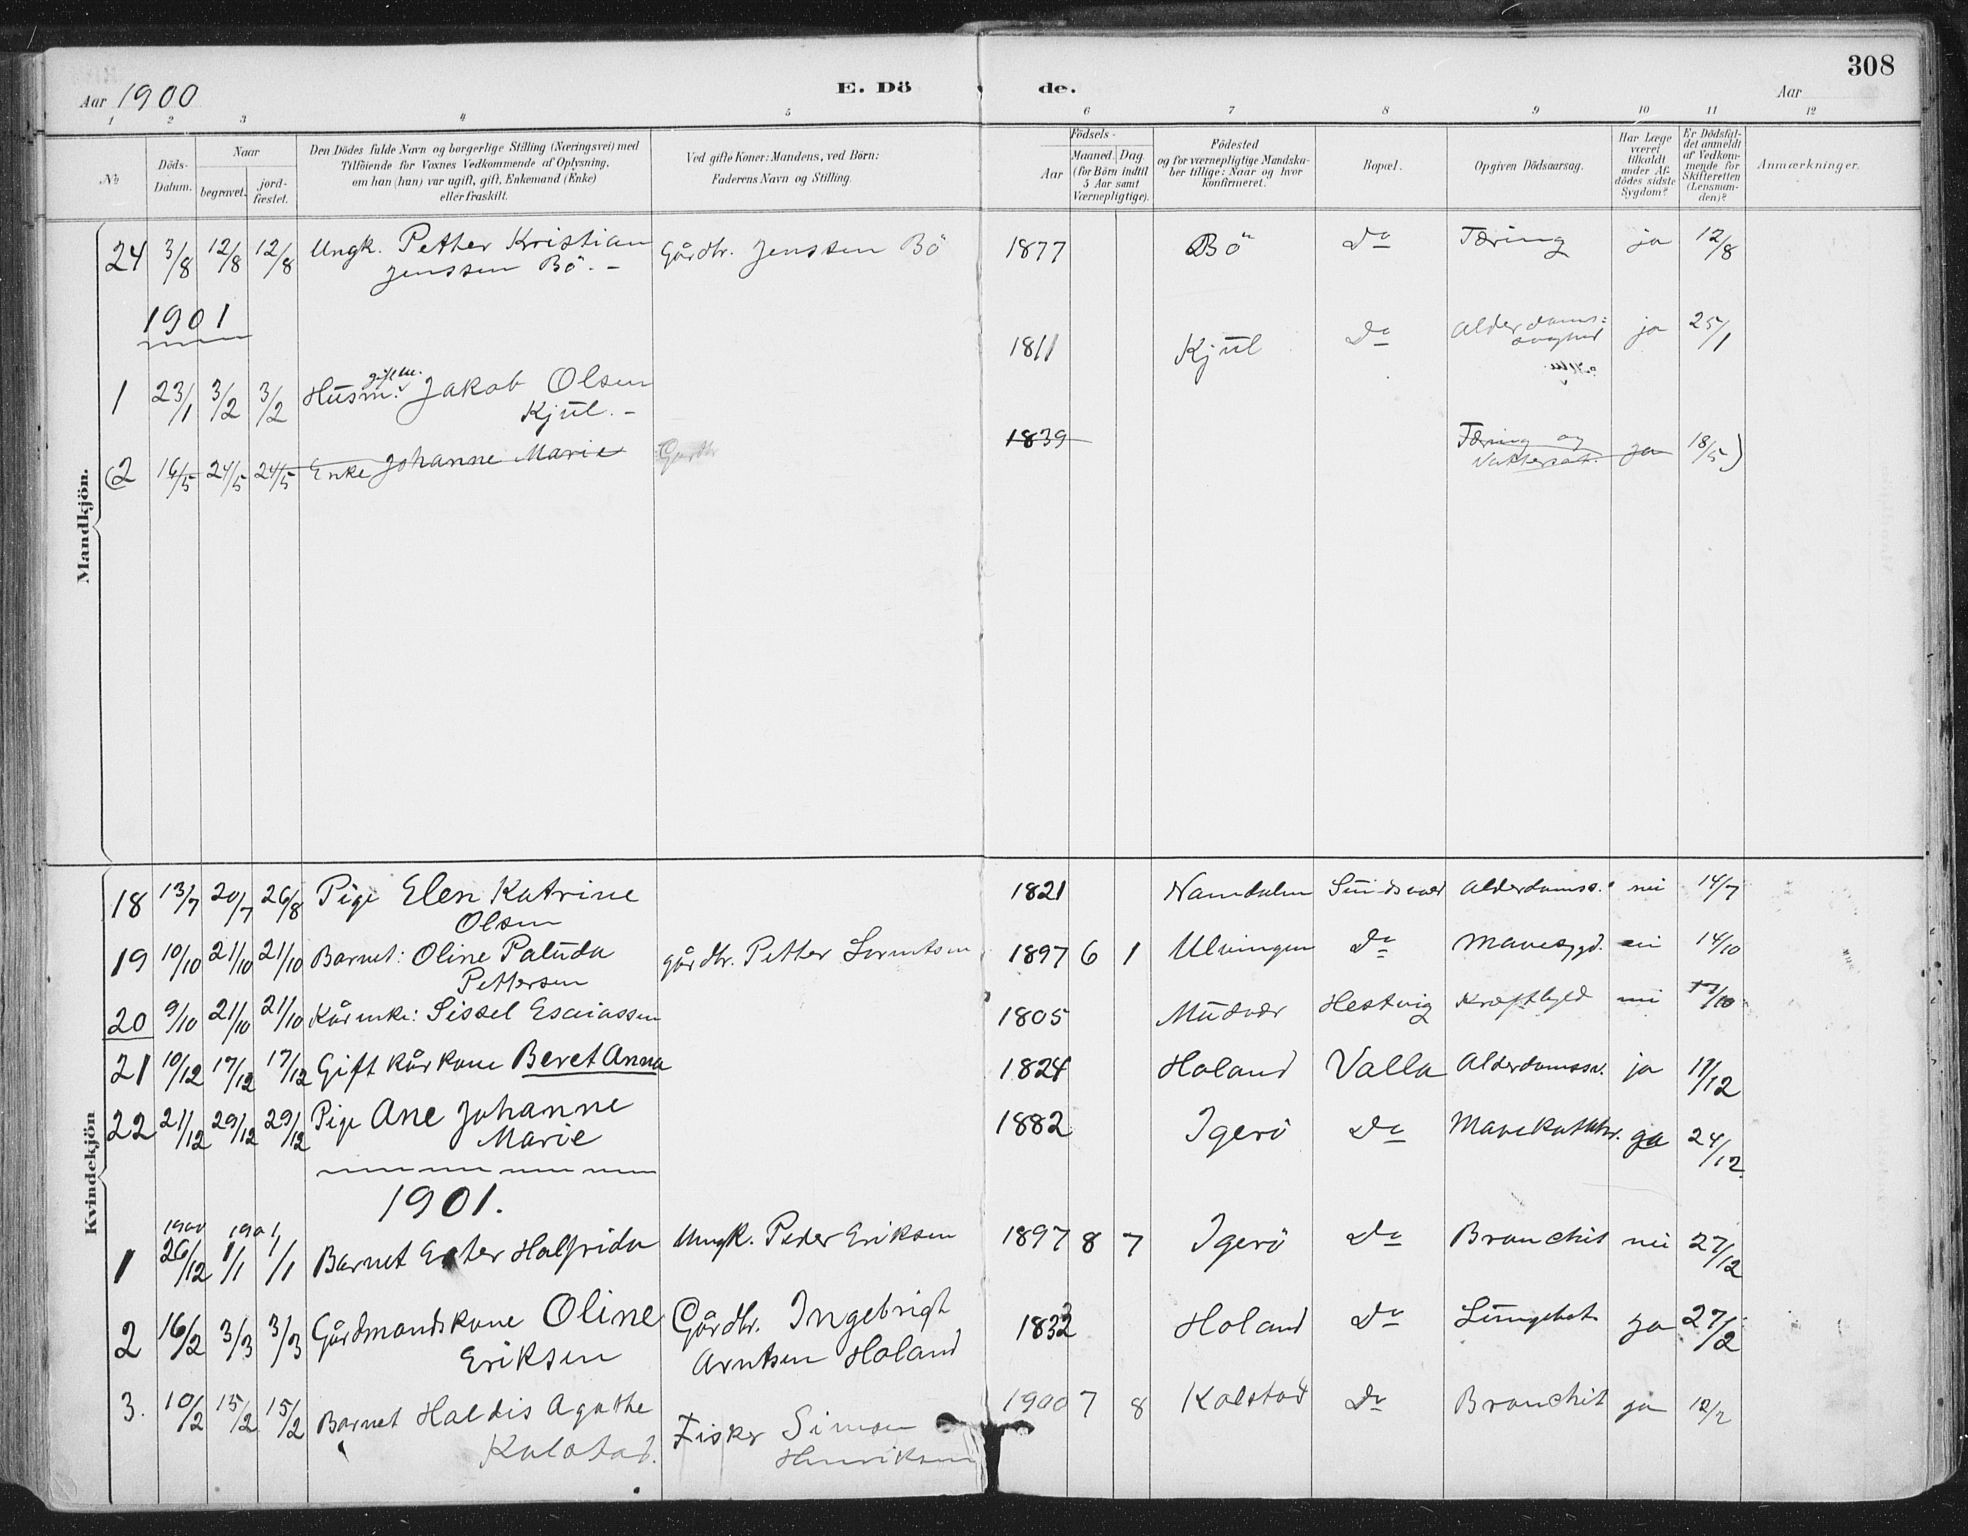 308
Aar 1900
E. Dö
de.
Aar
1 2 3 4 5 6 7 8 9 10 11 12
No
Döds-Datum.
Naar
begravet.
jord-fæstet.
Den Dödes fulde Navn og borgerlige Stilling (Næringsvei) med
Tilföiende for Voxnes Vedkommende af Oplysning,
om han (hun) var ugift, gift, Enkemand (Enke)
eller fraskilt.
Ved gifte Koner: Mandens, ved Börn:
Faderens Navn og Stilling.
Födsels-
Aar
Maaned. Dag.
(for Börn indtil
5 Aar samt
Værnepligtige).
Födested
og for værnepligtige Mandska-
ber tillige: Naar og hvor
konfirmeret.
Bopæl.
Opgiven Dödsaarsag.
Har Læge
været
tilkaldt
under Af-
dödes sidste
Sygdom?
Er Dödsfal-
det anmeldt
af Vedkom-
mende for
Skifteretten
(Lensman-
den)?
Anmærkninger.
Mandkjön.
24 3/8 12/8 12/8 Ungk. Petter Kristian Gårdbr. Jenssen Bö 1877 Bö Do Tæring ja 12/8
Jenssen Bö. -
1901
1 23/1 3/2 3/2 Husm. gift m. Jakob Olsen 1811 Kjul Do Alderdoms= ja 25/1
Kjul. - svaghed
(2 16/5 24/5 24/5 Enke Johanne Marie Gårdbr 1839 Tæring og ja 18/5)
Vattersot.
Kvindekjön
18 13/7 20/7 26/8 Pige Elen Katrine 1821 Namdalen Sundsvær Alderdomss. nei 14/7
Olsen
19 10/10 21/10 21/10 Barnet: Oline Paluda gårdbr. Petter Lorntsen 1897 6 1 Ulvingen Do Mavesygd. nei 14/10
Pettersen
20 9/10 21/10 21/10 Kårenke: Sissel Esaiassen 1805 Mudvær Hestvig Kræftbyld nei
21 10/12 17/12 17/12 Gift kårkone Beret Anna 1824 Holand Valla Alderdomssv. ja 17/12
22 21/12 29/12 29/12 Pige Ane Johanne 1882 Igerö Do Mavekatarrh. ja 24/12
Marie
1901.
1 1900 26/12 1901 1/1 1/1 Barnet Ester Halfrida Ungk. Peder Eriksen 1897 8 7 Igerö Do Bronchit nei 27/12
2 16/2 3/3 3/3 Gårdmandskone Oline Gårdbr. Ingebrigt 1832 Holand Do Lungebet. ja 27/2
Eriksen Arntsen Holand
3. 10/2 15/2 15/2 Barnet Haldis Agathe Fisker Simon 1900 7 8 Kolstad Do Bronchit ja 12/2
Kolstad. Henriksen